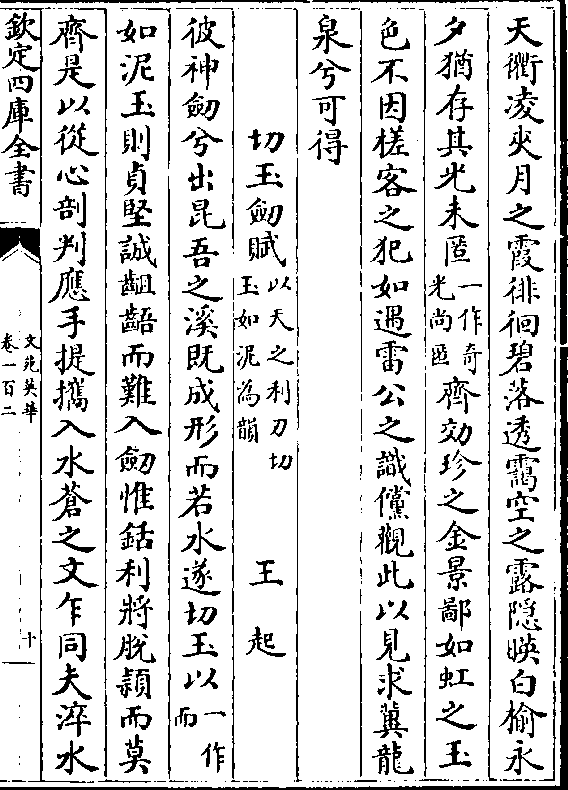 天衢凌夾月之霞徘徊碧落透靄空之露隠暎白榆永
夕猶存其光未匿一作奇光尚匿齊効珍之金景鄙如虹之玉
色不因槎客之犯如遇雷公之識儻觀此以見求冀龍
泉兮可得
切玉劒賦以天之利刀切玉如泥為韻 王起
彼神劒兮出昆吾之溪既成形而若水遂切玉以一作而
如泥玉則貞堅誠齟齬而難入劒惟銛利將脱穎而莫
齊是以從心剖判應手提攜入水蒼之文乍同夫淬水
欽定四庫全書
文苑英華
卷一百二
十